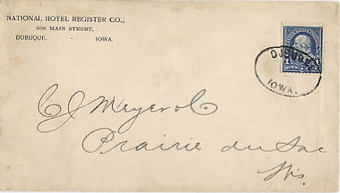 NATIONAL HOTEL REGISTER CO.,
606 MAIN STREET,
DUBUQUE, - IOWA.
DUBUQUE
IOWA.
C J Meyer
Prairie du Sac
Wis.